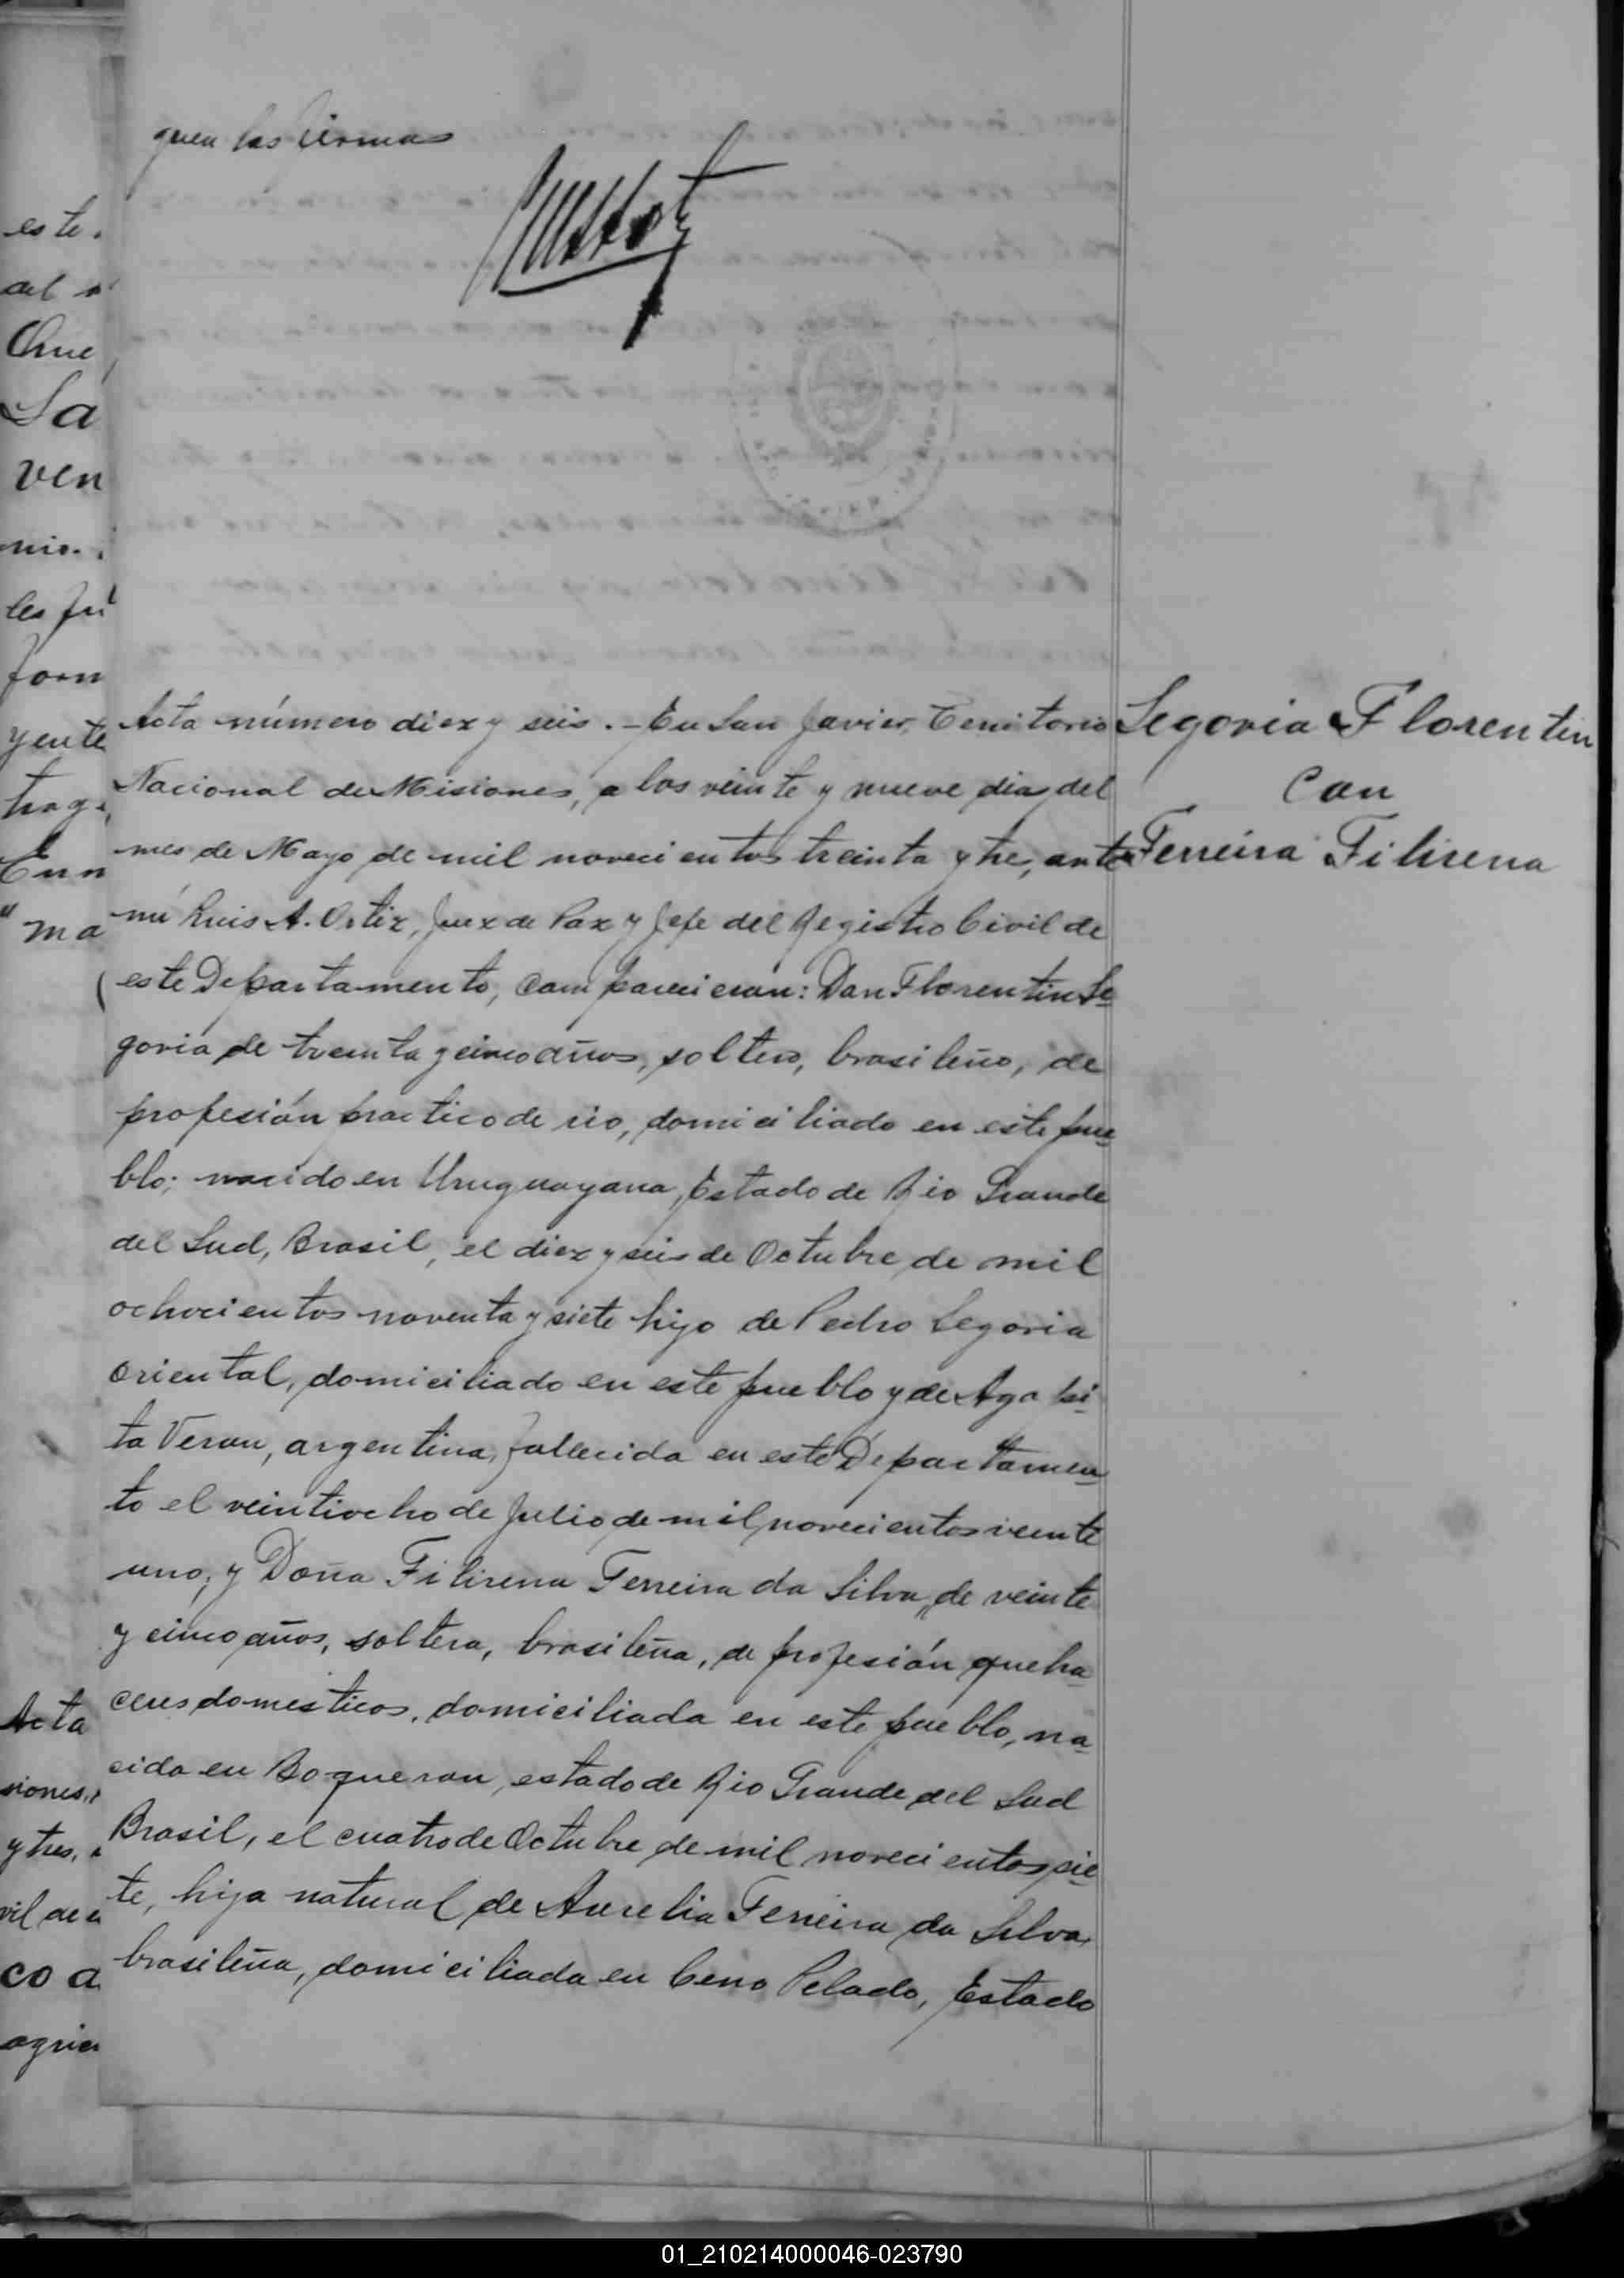 quen las firmas
Acta número diez y seis. - En San Javier, Territorio
Nacional de Misiones, a los veinte y nueve dias del
mes de Mayo de mil novecientos treinta y tres, ante
mí Luis A. Ortiz, Juez de Paz y Jefe del Registro Civil de
este Departamento, comparecieron: Don Florentin Se-
govia de treinta y cinco años, soltero, brasileño, de
profesión practico de rio, domiciliado en este pue-
blo; nacido en Uruguayana, Estado de Rio Grande
del Sud, Brasil, el diez y seis de Octubre de mil
ochocientos noventa y siete hijo de Pedro Segovia
oriental, domiciliado en este pueblo y de Agapi-
ta Veron, argentina, fallecida en este Departamen-
to el veintiocho de Julio de mil novecientos veinte
uno; y Doña Filirena Ferreira da Silva, de veinte
y cinco años, soltera, brasileña, de profesión queha
ceres domesticos, domiciliada en este pueblo, na-
cida en Boqueron, estado de Rio Grande del Sud
Brasil, el cuatro de Octubre de mil novecientos sie-
te, hija natural de Aurelia Ferreira da Silva,
brasileña, domiciliada en Cerro Pelado, Estado
Segovia Florentin
con
Ferreira Filirena
este.
Sa
ven
les fu
forn
y ente
ma
Acta
siones,
y tres,
vil de e
co a
agric
01_210214000046-023790